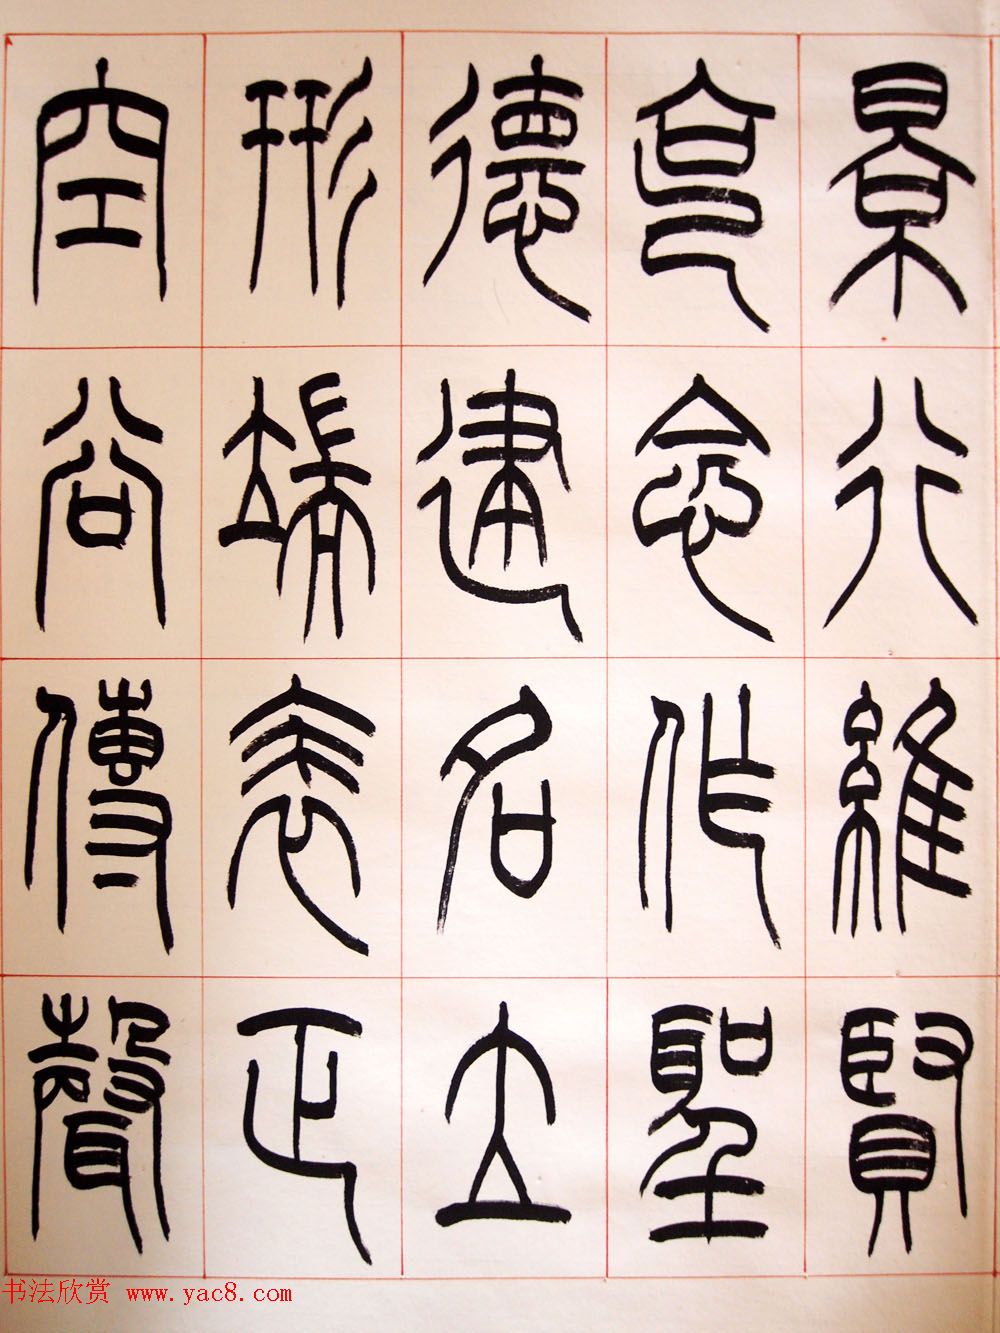 景行維賢
克念作聖
德建名立
形端表正
空谷傳聲
书法欣赏 www.yac8.com